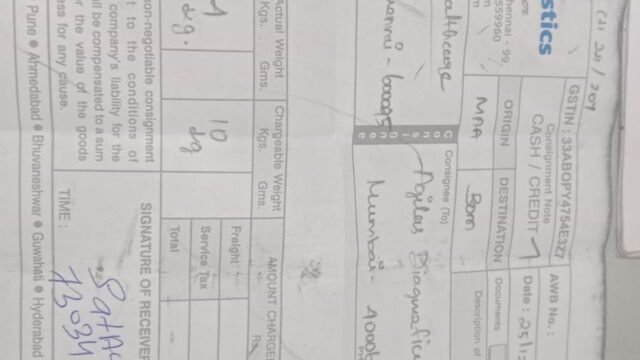 stics
hennai - 99.
559960
GSTIN : 33ABOPY4754E3Z7
Consignment Note
CASH / CREDIT
AWB No. :
Date : 25/1
ORIGIN
DESTINATION
Documents
MAA
Bom
Description of
althcare
Consignee (To)
Agilus Diagnostics
Mumbai - 4000
Actual Weight
Chargeable Weight
AMOUNT CHARGE
Kgs.
Gms.
Kgs.
Gms.
Rs
10
kg
kg.
Freight
Service Tax
Total
non-negotiable consignment
t to the conditions of
company's liability for the
ll be compensated to a sum
r the value of the goods
ess for any cause.
SIGNATURE OF RECEIVER
TIME :
Pune ● Ahmedabad ● Bhuvaneshwar ● Guwahati ● Hyderabad